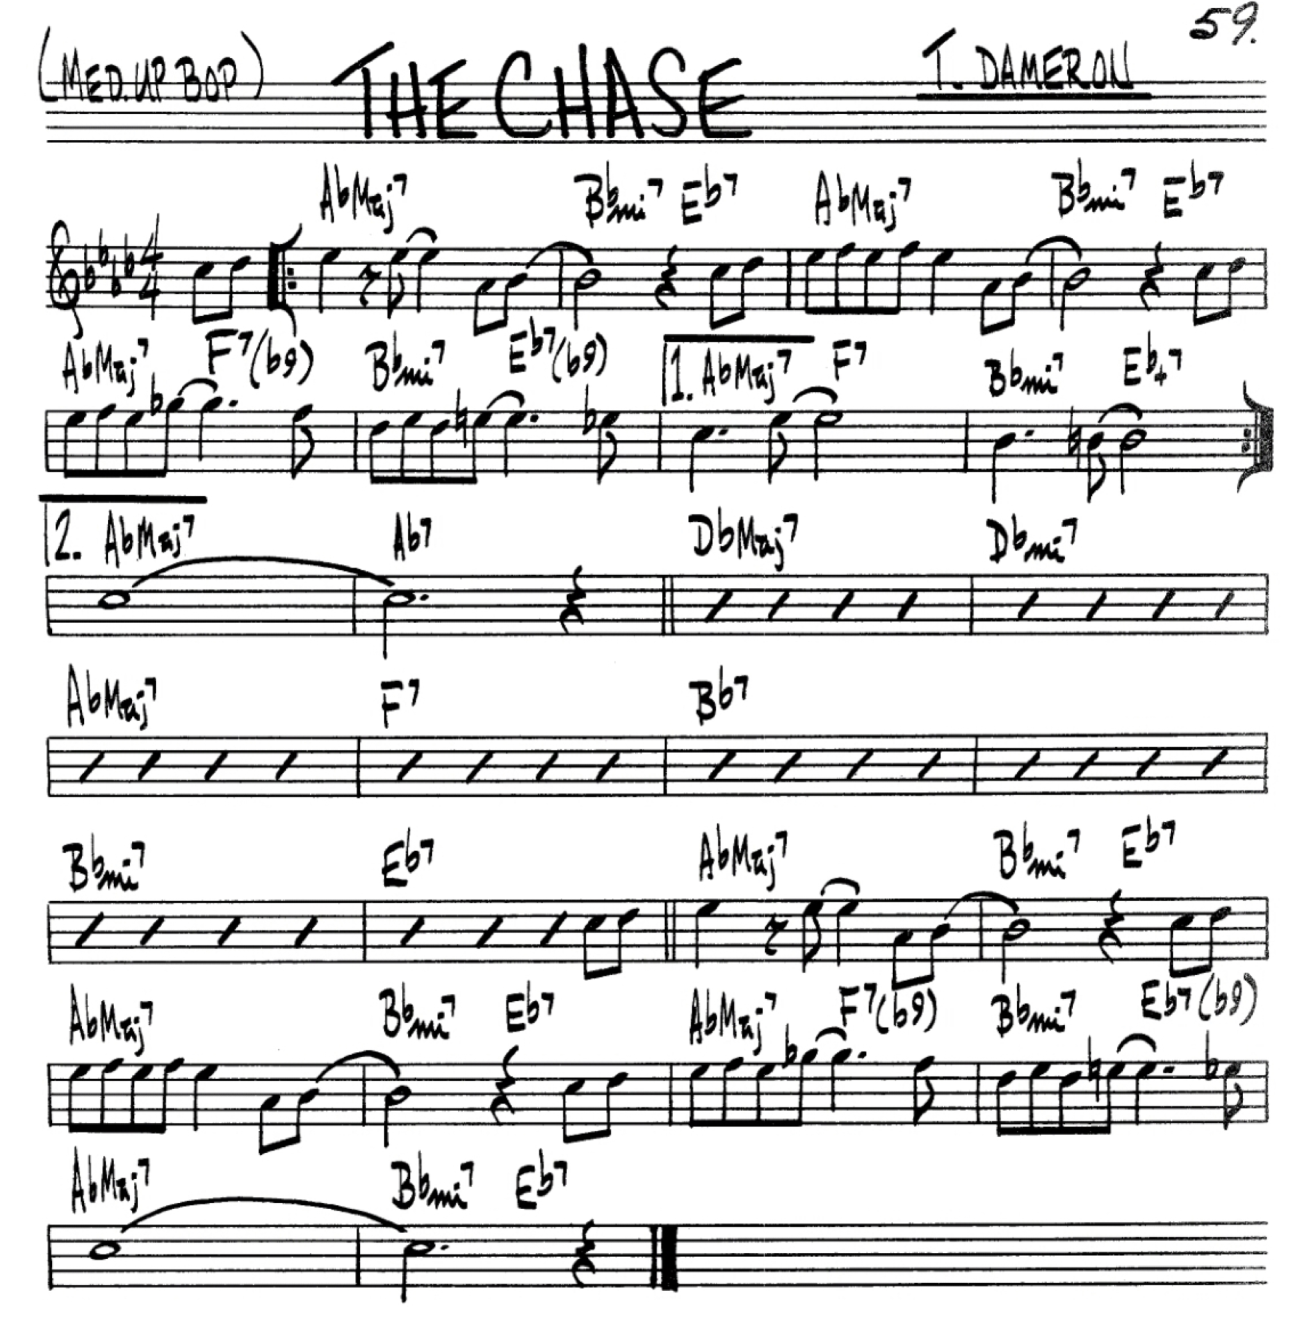 59.
(MED. UP BOP) THE CHASE T. DAMERON
AbMaj7 Bbmi7 Eb7 AbMaj7 Bbmi7 Eb7
4
4
AbMaj7 F7(b9) Bbmi7 Eb7(b9) 1. AbMaj7 F7 Bbmi7 Eb+7
2. AbMaj7 Ab7 DbMaj7 Dbmi7
AbMaj7 F7 Bb7
Bbmi7 Eb7 AbMaj7 Bbmi7 Eb7
AbMaj7 Bbmi7 Eb7 AbMaj7 F7(b9) Bbmi7 Eb7(b9)
AbMaj7 Bbmi7 Eb7